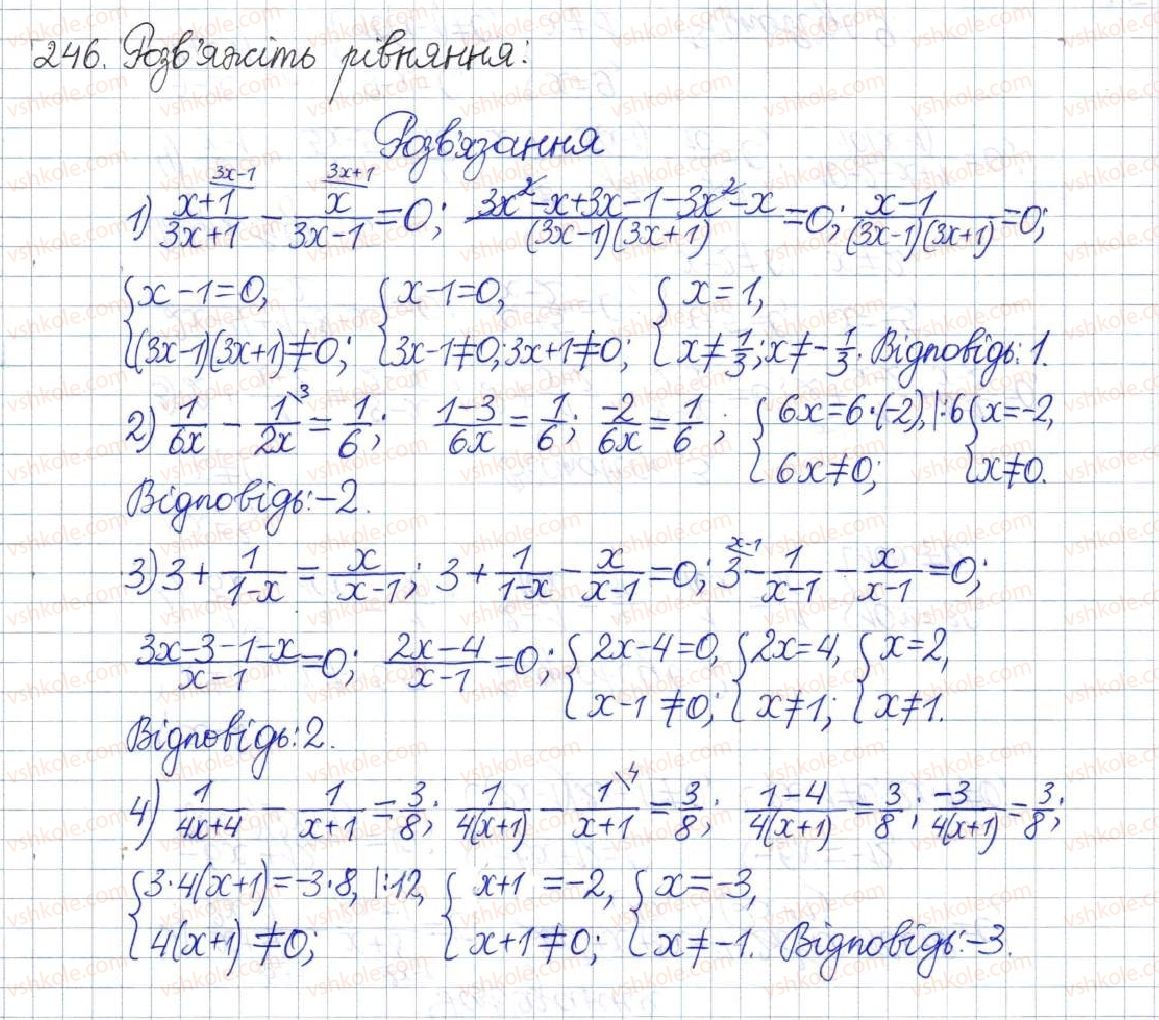 246. Розв'яжіть рівняння:
Розв'язання
1) (x+1)/(3x+1) ^(3x-1) - x/(3x-1) ^(3x+1) = 0; (3x²-x+3x-1-3x²-x)/((3x-1)(3x+1)) = 0; (x-1)/((3x-1)(3x+1)) = 0;
{x-1=0, (3x-1)(3x+1)≠0; {x-1=0, 3x-1≠0; 3x+1≠0; {x=1, x≠1/3; x≠-1/3. Відповідь: 1.
2) 1/(6x) - 1/(2x) \3 = 1/6; (1-3)/(6x) = 1/6; -2/(6x) = 1/6; {6x=6·(-2), |:6 6x≠0; {x=-2, x≠0.
Відповідь: -2.
3) 3 + 1/(1-x) = x/(x-1); 3 + 1/(1-x) - x/(x-1) = 0; 3 ^(x-1) - 1/(x-1) - x/(x-1) = 0;
(3x-3-1-x)/(x-1) = 0; (2x-4)/(x-1) = 0; {2x-4=0, x-1≠0; {2x=4, x≠1; {x=2, x≠1.
Відповідь: 2.
4) 1/(4x+4) - 1/(x+1) = 3/8; 1/(4(x+1)) - 1/(x+1) \4 = 3/8; (1-4)/(4(x+1)) = 3/8; -3/(4(x+1)) = 3/8;
{3·4(x+1)=-3·8, |:12, 4(x+1)≠0; {x+1=-2, x+1≠0; {x=-3, x≠-1. Відповідь: -3.
vshkole.com